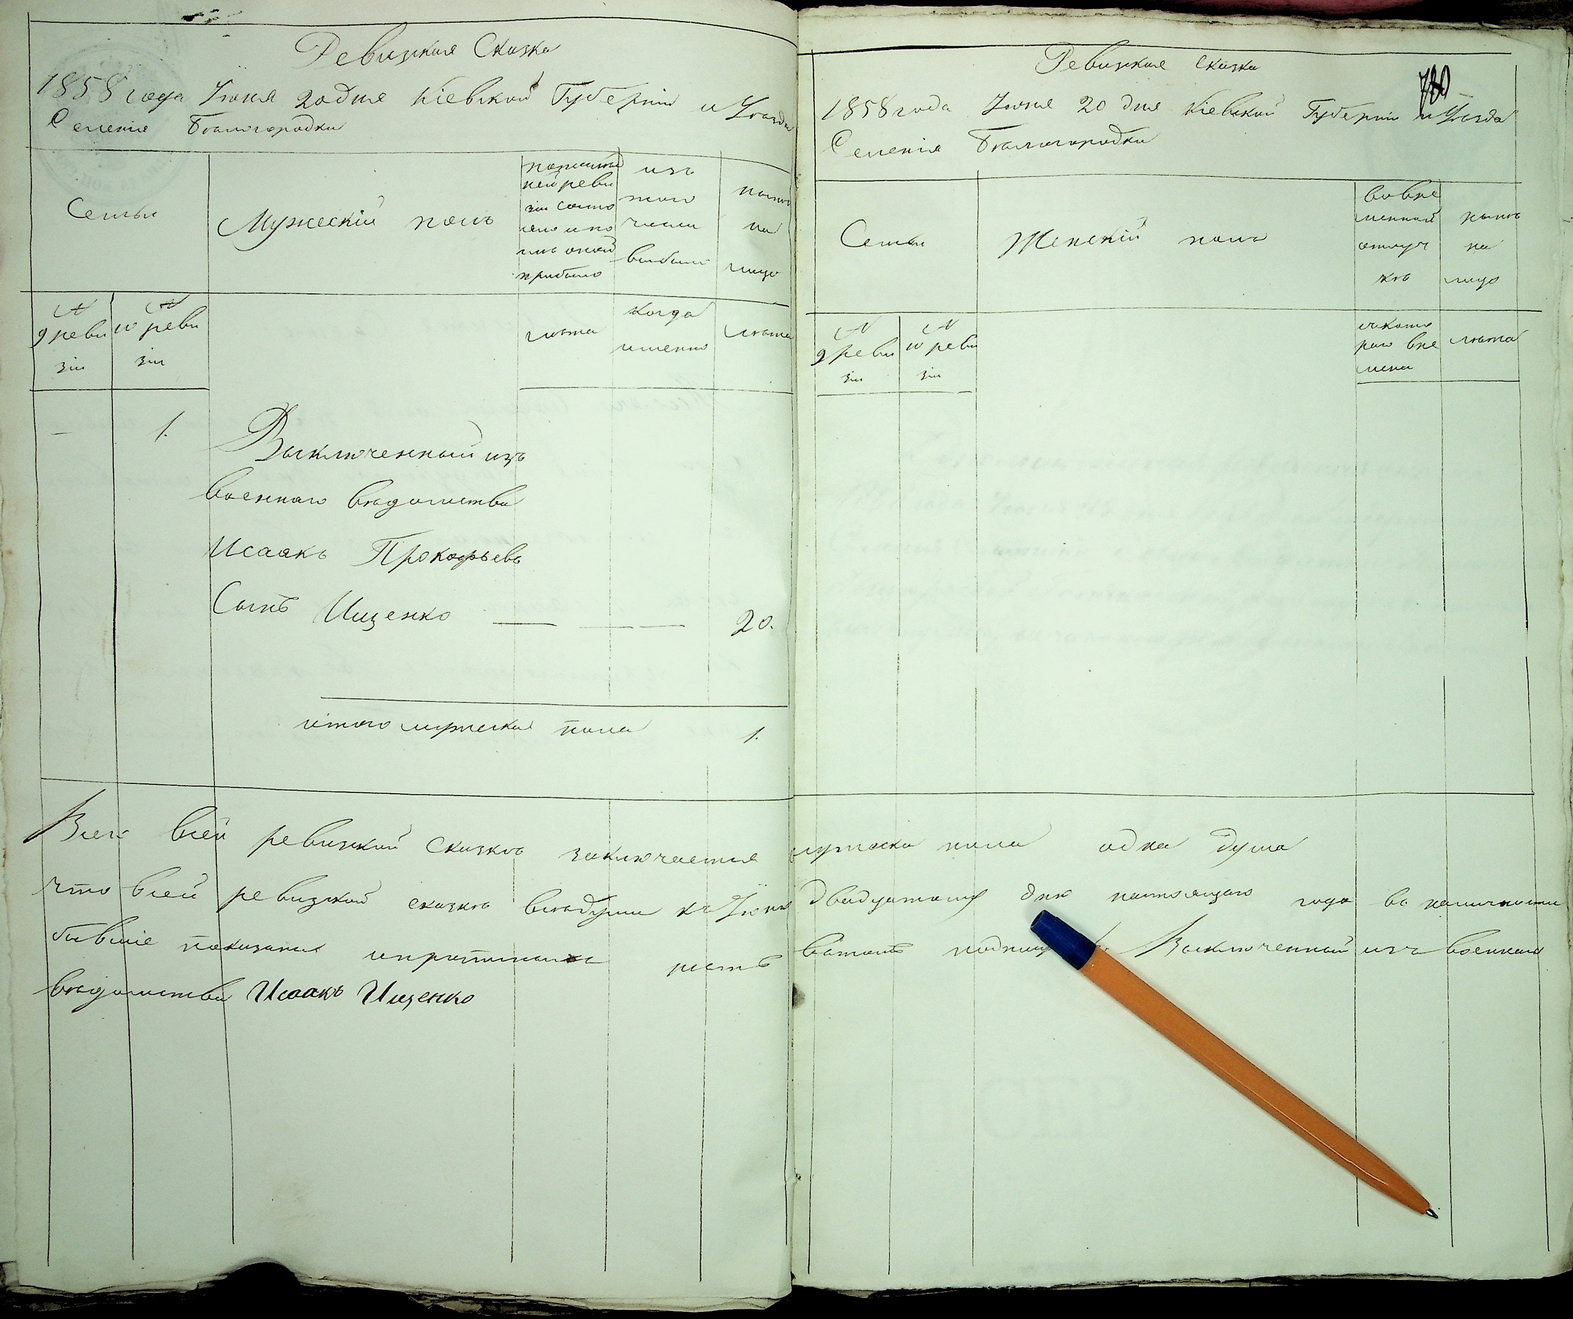 Ревизкая Сказка
1858 года Июня 20 дня Кіевской Губерніи и Уѣзда
Селенія Бѣлогородки
Семьи
Мужескій полъ
по послѣд
ней реви
зіи состо
яло и по
слѣ оной
прибыло
изъ
того
числа
выбыло
нынѣ
на
лицо
№
9 реви
зіи
№
10 реви
зіи
лѣта
когда
именно
лѣта
— 1.
Выключенный изъ
военнаго вѣдомства
Исаакъ Прокофьевъ
Сынъ Ищенко — — — 20.
итого мужеска пола 1.
Ревизкая Сказка
780
1858 года Июня 20 дня Кіевской Губерніи и Уѣзда
Селенія Бѣлогородки
Семьи
Женскій полъ
во вре
менной
отлуч
кѣ
нынѣ
на
лицо
№
9 реви
зіи
№
10 реви
зіи
съ кото
раго вре
мени
лѣта
Всего всей ревизкой сказкѣ заключается мужеска пола одна душа
что всей ревизкой сказкѣ всѣ души къ Июня двадцатому дню настоящаго года въ наличности
бывшіе показаны въ томъ Выключенный изъ военнаго
вѣдомства Исаакъ Ищенко